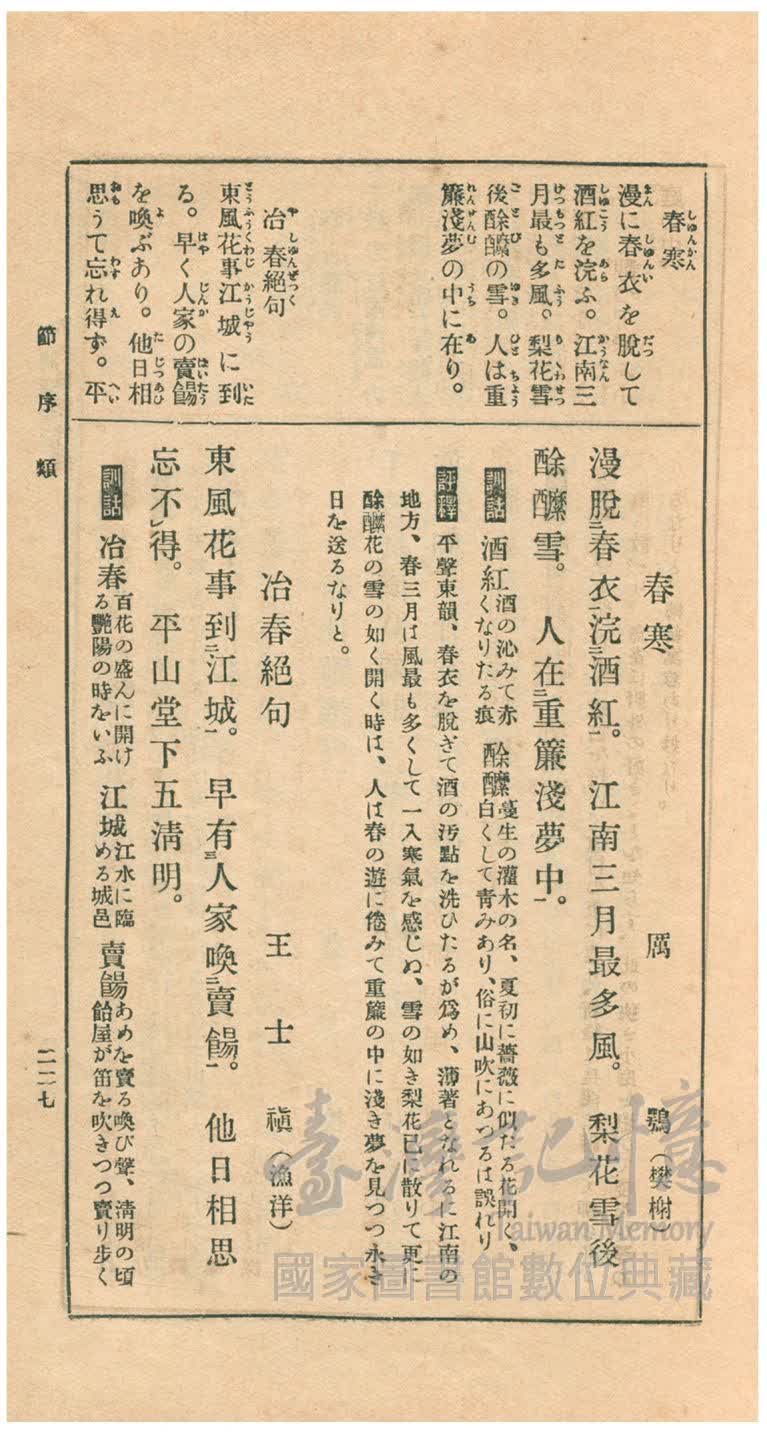 春寒
漫に春衣を脫して
酒紅を浣ふ。江南三
月最も多風。梨花雪
後酴醿の雪。人は重
簾淺夢の中に在り。
冶春絕句
東風花事江城に到
る。早く人家の賣餳
を喚ぶあり。他日相
思うて忘れ得ず。平
春寒 厲鶚(樊榭)
漫脫二春衣一浣二酒紅一。江南三月最多風。梨花雪後
酴醿雪。人在二重簾淺夢中一。
訓詁 酒紅 酒の沁みて赤くなりたる痕 酴醿 蔓生の灌木の名、夏初に薔薇に似たる花開く、白くして靑みあり、俗に山吹にあつるは誤れり
評釋 平聲東韻、春衣を脫ぎて酒の汚點を洗ひたるが爲め、薄著となれるに江南の
地方、春三月は風最も多くして一入寒氣を感じぬ、雪の如き梨花已に散りて更に
酴醿花の雪の如く開く時は、人は春の遊に倦みて重簾の中に淺き夢を見つつ永き
日を送るなりと。
冶春絕句 王士禛(漁洋)
東風花事到二江城一。早有三人家喚二賣餳一。他日相思
忘不レ得。平山堂下五淸明。
訓詁 冶春 百花の盛んに開ける艷陽の時をいふ 江城 江水に臨める城邑 賣餳 あめを賣る喚び聲、淸明の頃飴屋が笛を吹きつつ賣り步く
節序類
二二七
臺灣記憶
Taiwan Memory
國家圖書館數位典藏